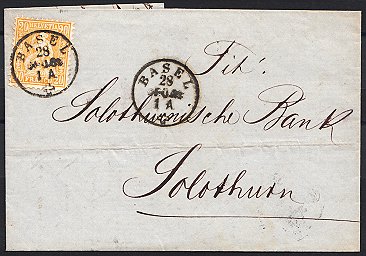 20 HELVETIA 20
BASEL
28
1 A
BASEL
28
1 A
Tit:
Solothurnische Bank
Solothurn